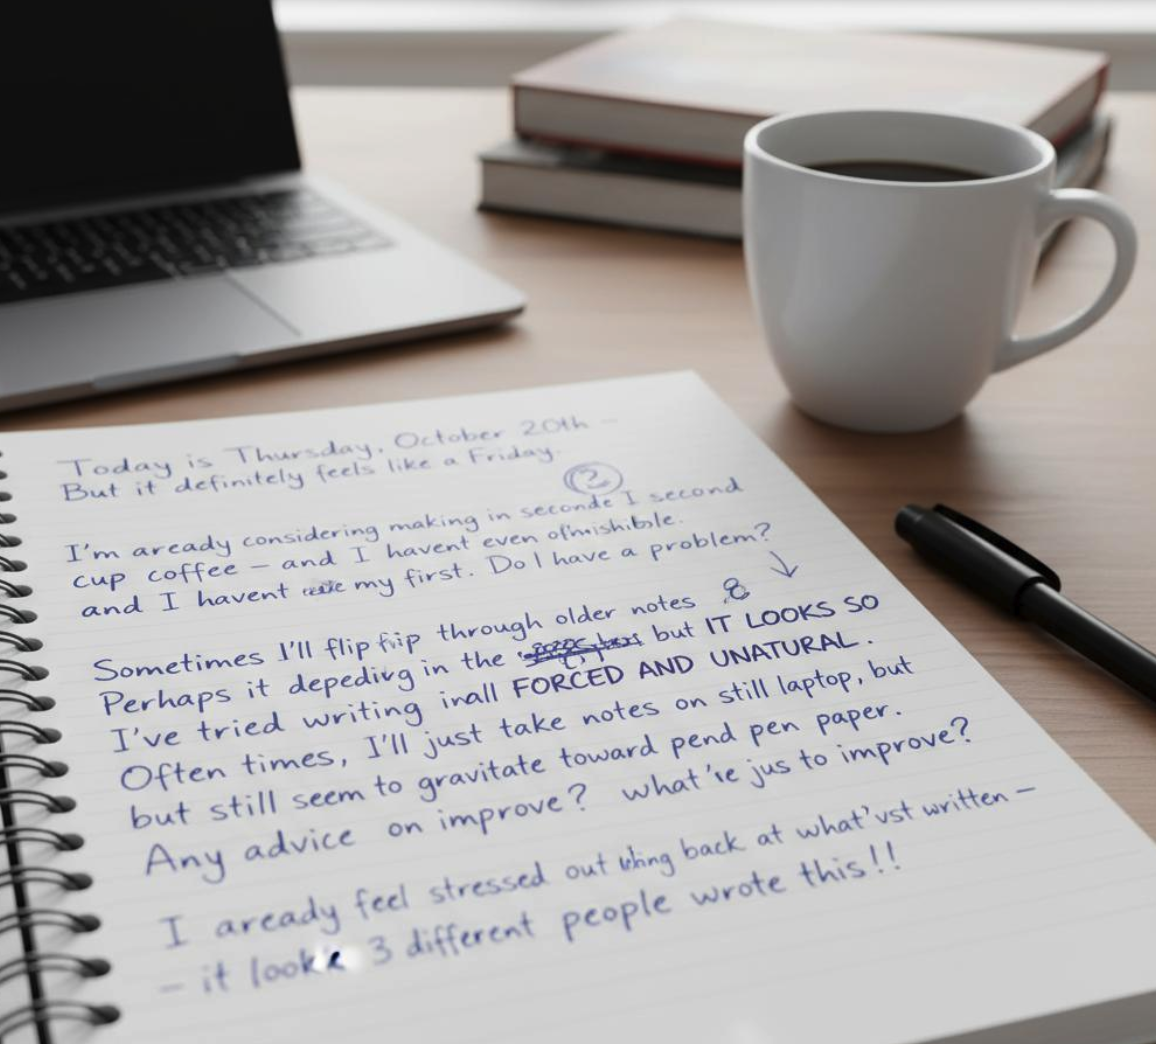 Today is Thursday, October 20th –
But it definitely feels like a Friday.
?
I'm aready considering making in seconde I second
cup coffee – and I havent even
and I havent my first. Do I have a problem?
Sometimes I'll flip through older notes 8
Perhaps it depedivg in the but IT LOOKS SO
I've tried writing inall FORCED AND UNATURAL.
Often times, I'll just take notes on still laptop, but
but still seem to gravitate toward pend pen paper.
Any advice on improve? what're jus to improve?
I aready feel stressed out back at what'vst written –
– it look 3 different people wrote this!!